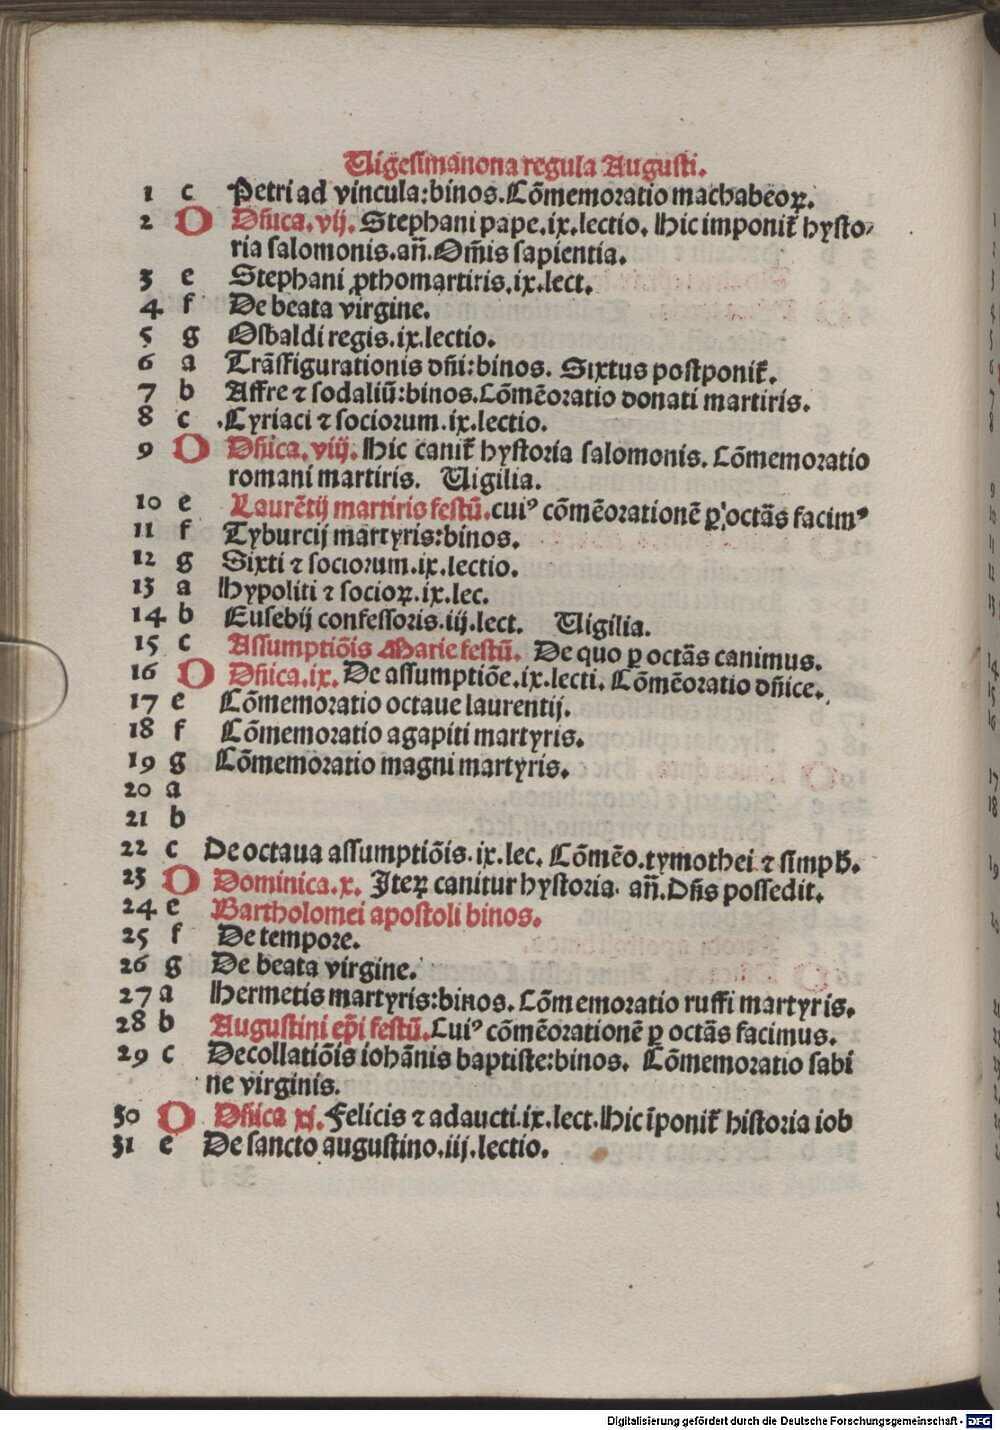 Uigesimanona regula Augusti.
1 c Petri ad vincula:binos.Cõmemoratio machabeoꝝ.
2 D Dñica.vij.Stephani pape.ix.lectio. Hic imponit᷑ hysto⸗
ria salomonis.añ.Om̃is sapientia.
3 e Stephani ꝓthomartiris.ix.lect.
4 f De beata virgine.
5 g Osbaldi regis.ix.lectio.
6 a Trãsfigurationis dñi:binos. Sixtus postponit᷑.
7 b Affre ⁊ sodaliũ:binos.Cõmẽoratio donati martiris.
8 c .Cyriaci ⁊ sociorum.ix.lectio.
9 D Dñica.viij.Hic canit᷑ hystoria salomonis. Cõmemoratio
romani martiris. Uigilia.
10 e Laurẽtij martiris festũ.cuiꝰ cõmẽorationẽ ꝑ octãs facimꝰ
11 f Tyburcij martyris:binos.
12 g Sixti ⁊ sociorum.ix.lectio.
13 a Hypoliti ⁊ socioꝝ.ix.lec.
14 b Eusebij confessoris.iij.lect. Uigilia.
15 c Assumptiõis Marie festũ. De quo ꝑ octãs canimus.
16 D Dñica.ix.De assumptiõe.ix.lecti. Cõmẽoratio dñice.
17 e Cõmemoratio octaue laurentij.
18 f Cõmemoratio agapiti martyris.
19 g Cõmemoratio magni martyris.
20 a
21 b
22 c De octaua assumptiõis.ix.lec. Cõmẽo.tymothei ⁊ simpħ.
23 D Dominica.x. Iteꝝ canitur hystoria. añ.Dñs possedit.
24 e Bartholomei apostoli binos.
25 f De tempore.
26 g De beata virgine.
27 a Hermetis martyris:binos. Cõmemoratio ruffi martyris.
28 b Augustini ep̃i festũ.Cuiꝰ cõmẽorationẽ ꝑ octãs facimus.
29 c Decollatiõis iohãnis baptiste:binos. Cõmemoratio sabi
ne virginis.
30 D Dñica xj.Felicis ⁊ adaucti.ix.lect.Hic ĩponit᷑ historia iob
31 e De sancto augustino.iij.lectio.
Digitalisierung gefördert durch die Deutsche Forschungsgemeinschaft - DFG